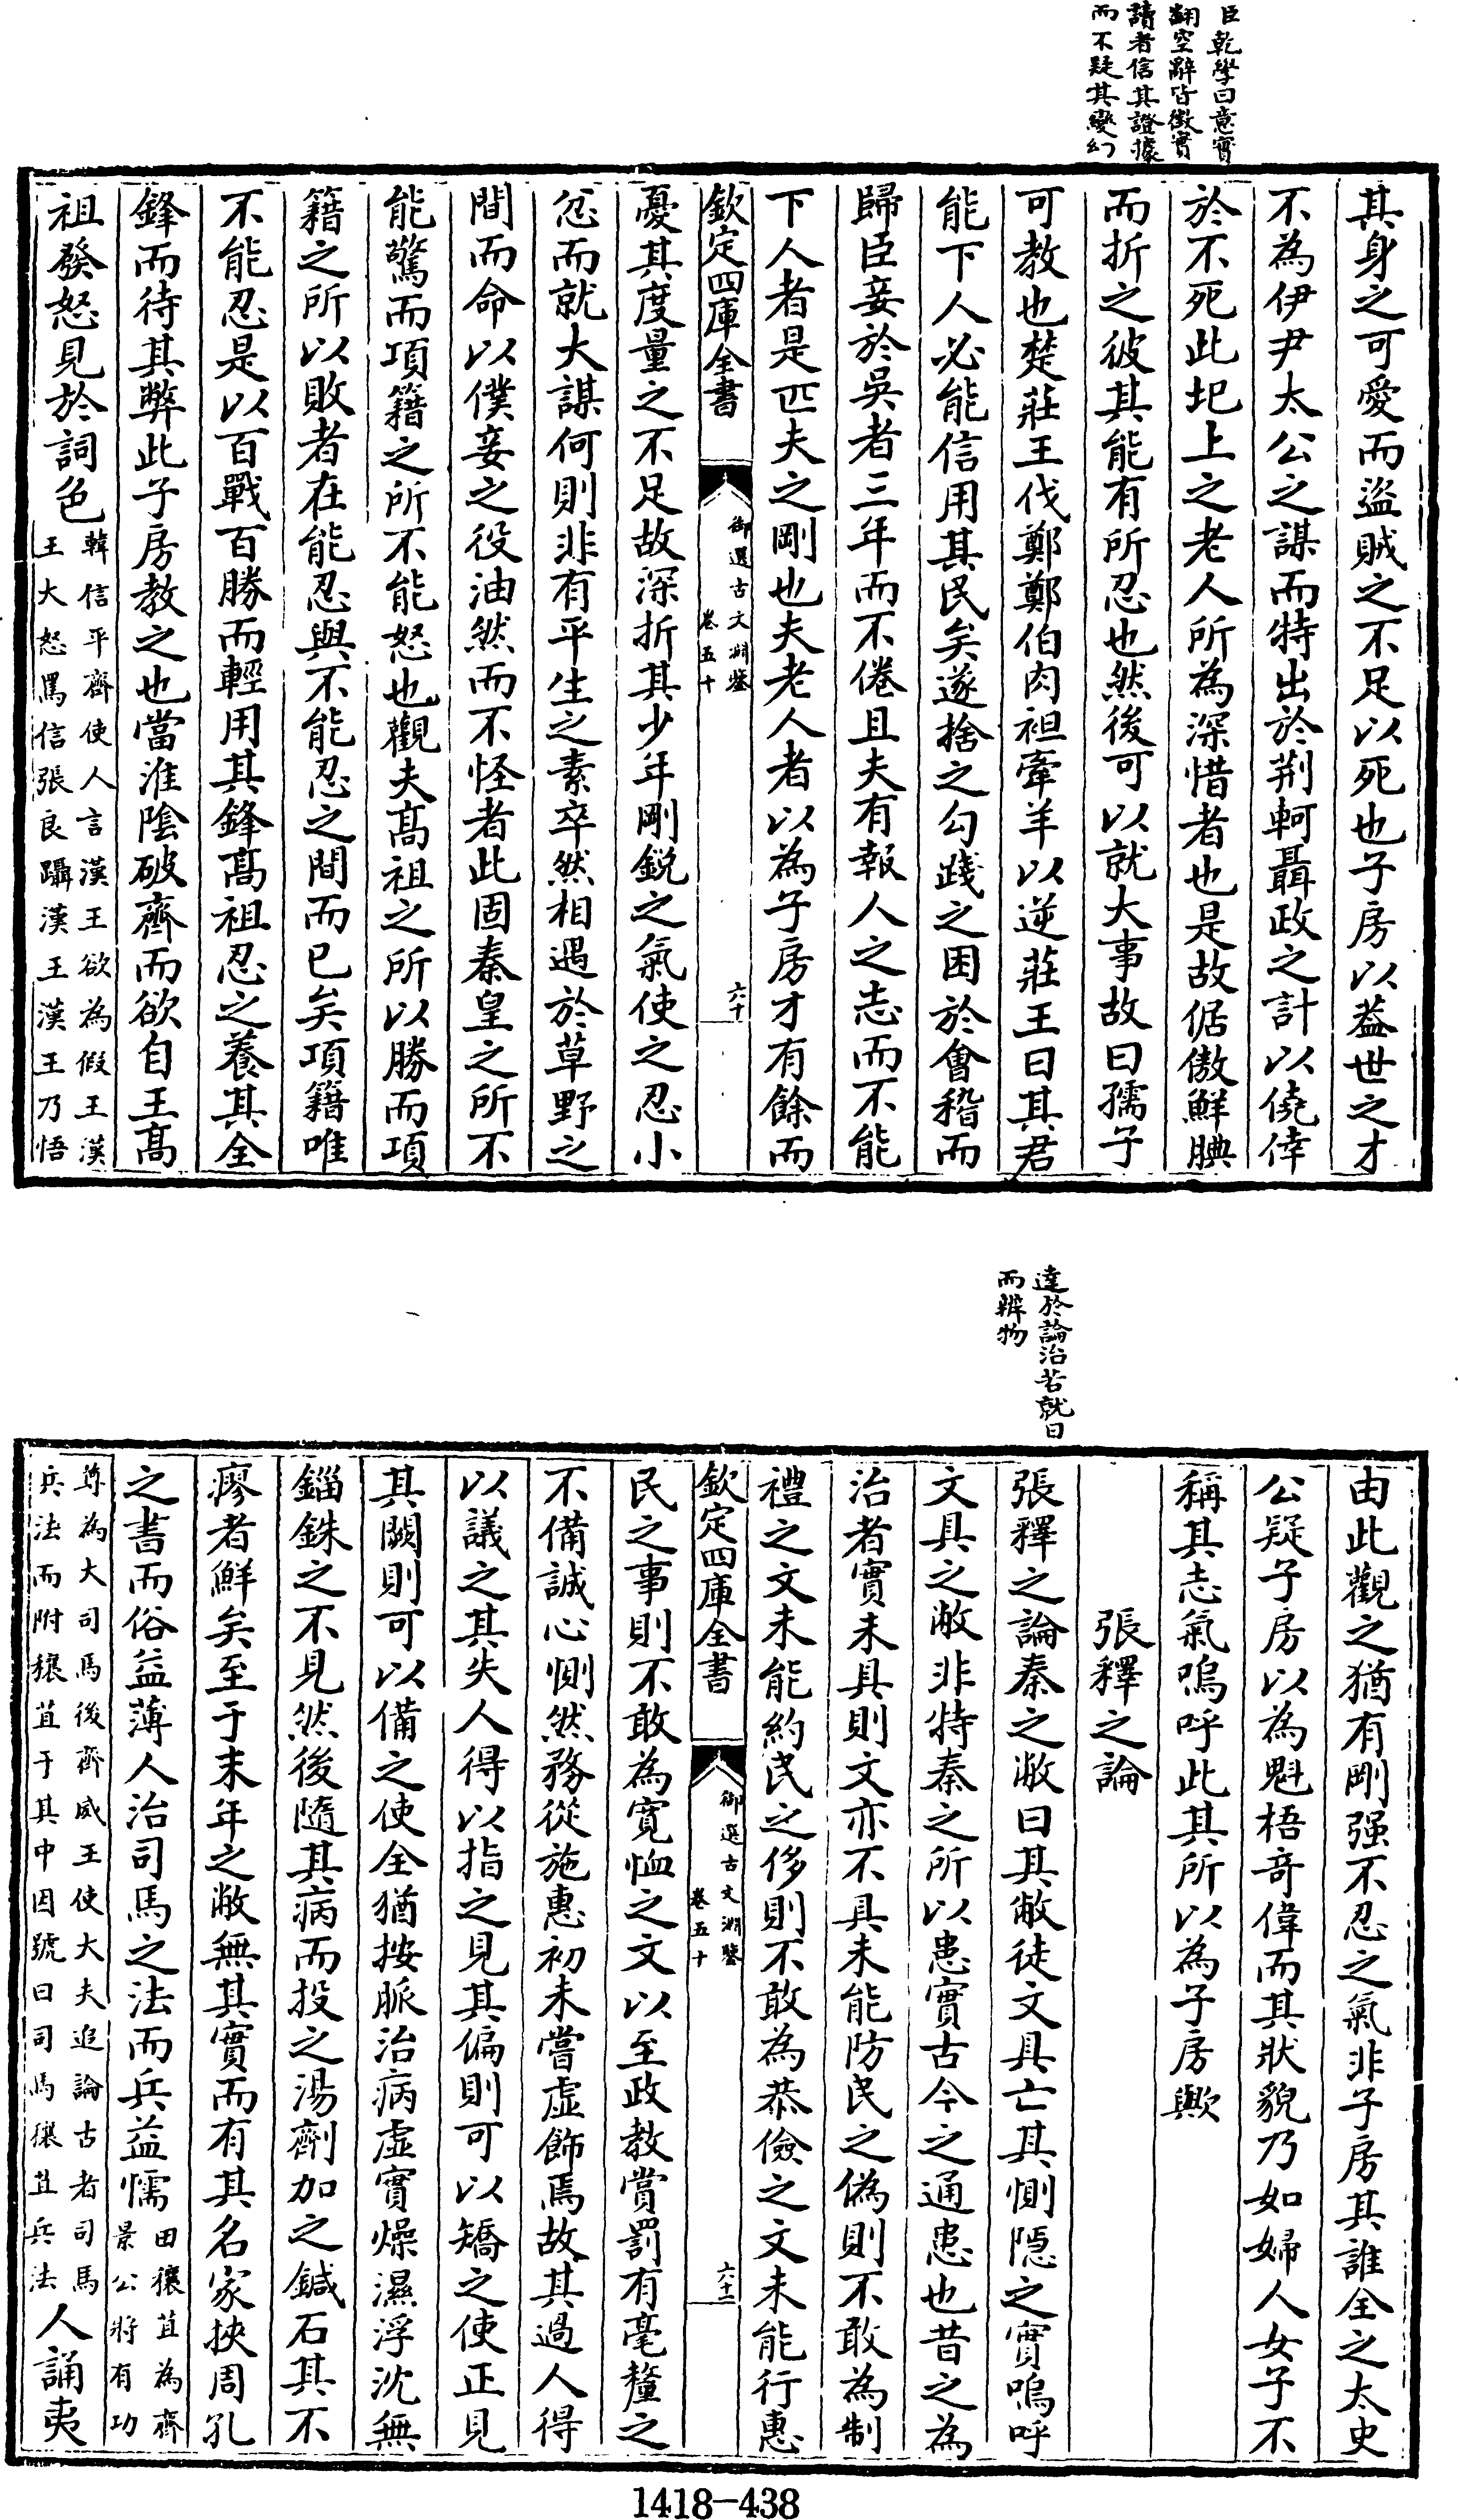 臣乾學曰意實
翻空辭皆徵實
讀者信其證據
而不疑其變幻
其身之可愛而盜賊之不足以死也子房以蓋世之才
不為伊尹太公之謀而特出於荆軻聶政之計以僥倖
於不死此圯上之老人所為深惜者也是故倨傲鮮腆
而折之彼其能有所忍也然後可以就大事故曰孺子
可教也楚莊王伐鄭鄭伯肉袒牽羊以逆莊王曰其君
能下人必能信用其民矣遂捨之勾踐之困於會稽而
歸臣妾於吳者三年而不倦且夫有報人之志而不能
下人者是匹夫之剛也夫老人者以為子房才有餘而
欽定四庫全書
御選古文淵鑒
卷五十
六十
憂其度量之不足故深折其少年剛銳之氣使之忍小
忿而就大謀何則非有平生之素卒然相遇於草野之
間而命以僕妾之役油然而不怪者此固秦皇之所不
能驚而項籍之所不能怒也觀夫高祖之所以勝而項
籍之所以敗者在能忍與不能忍之間而已矣項籍唯
不能忍是以百戰百勝而輕用其鋒高祖忍之養其全
鋒而待其弊此子房教之也當淮陰破齊而欲自王高
祖發怒見於詞色
韓信平齊使人言漢王欲為假王漢
王大怒罵信張良躡漢王漢王乃悟
達於論治若就日
而辨物
由此觀之猶有剛强不忍之氣非子房其誰全之太史
公疑子房以為魁梧奇偉而其狀貌乃如婦人女子不
稱其志氣嗚呼此其所以為子房歟
張釋之論
張釋之論秦之敝曰其敝徒文具亡其惻隱之實嗚呼
文具之敝非特秦之所以患實古今之通患也昔之為
治者實未具則文亦不具未能防民之偽則不敢為制
禮之文未能約民之侈則不敢為恭儉之文未能行惠
欽定四庫全書
御選古文淵鑒
卷五十
六十一
民之事則不敢為寬恤之文以至政教賞罰有毫釐之
不備誠心惻然務從施惠初未嘗虛飾焉故其過人得
以議之其失人得以指之見其偏則可以矯之使正見
其闕則可以備之使全猶按脈治病虛實燥濕浮沈無
錙銖之不見然後隨其病而投之湯劑加之鍼石其不
瘳者鮮矣至于末年之敝無其實而有其名家挾周孔
之書而俗益薄人治司馬之法而兵益懦
田穰苴為齊
景公將有功
尊為大司馬後齊威王使大夫追論古者司馬
兵法而附穰苴于其中因號曰司馬穰苴兵法
人誦夷
1418-438